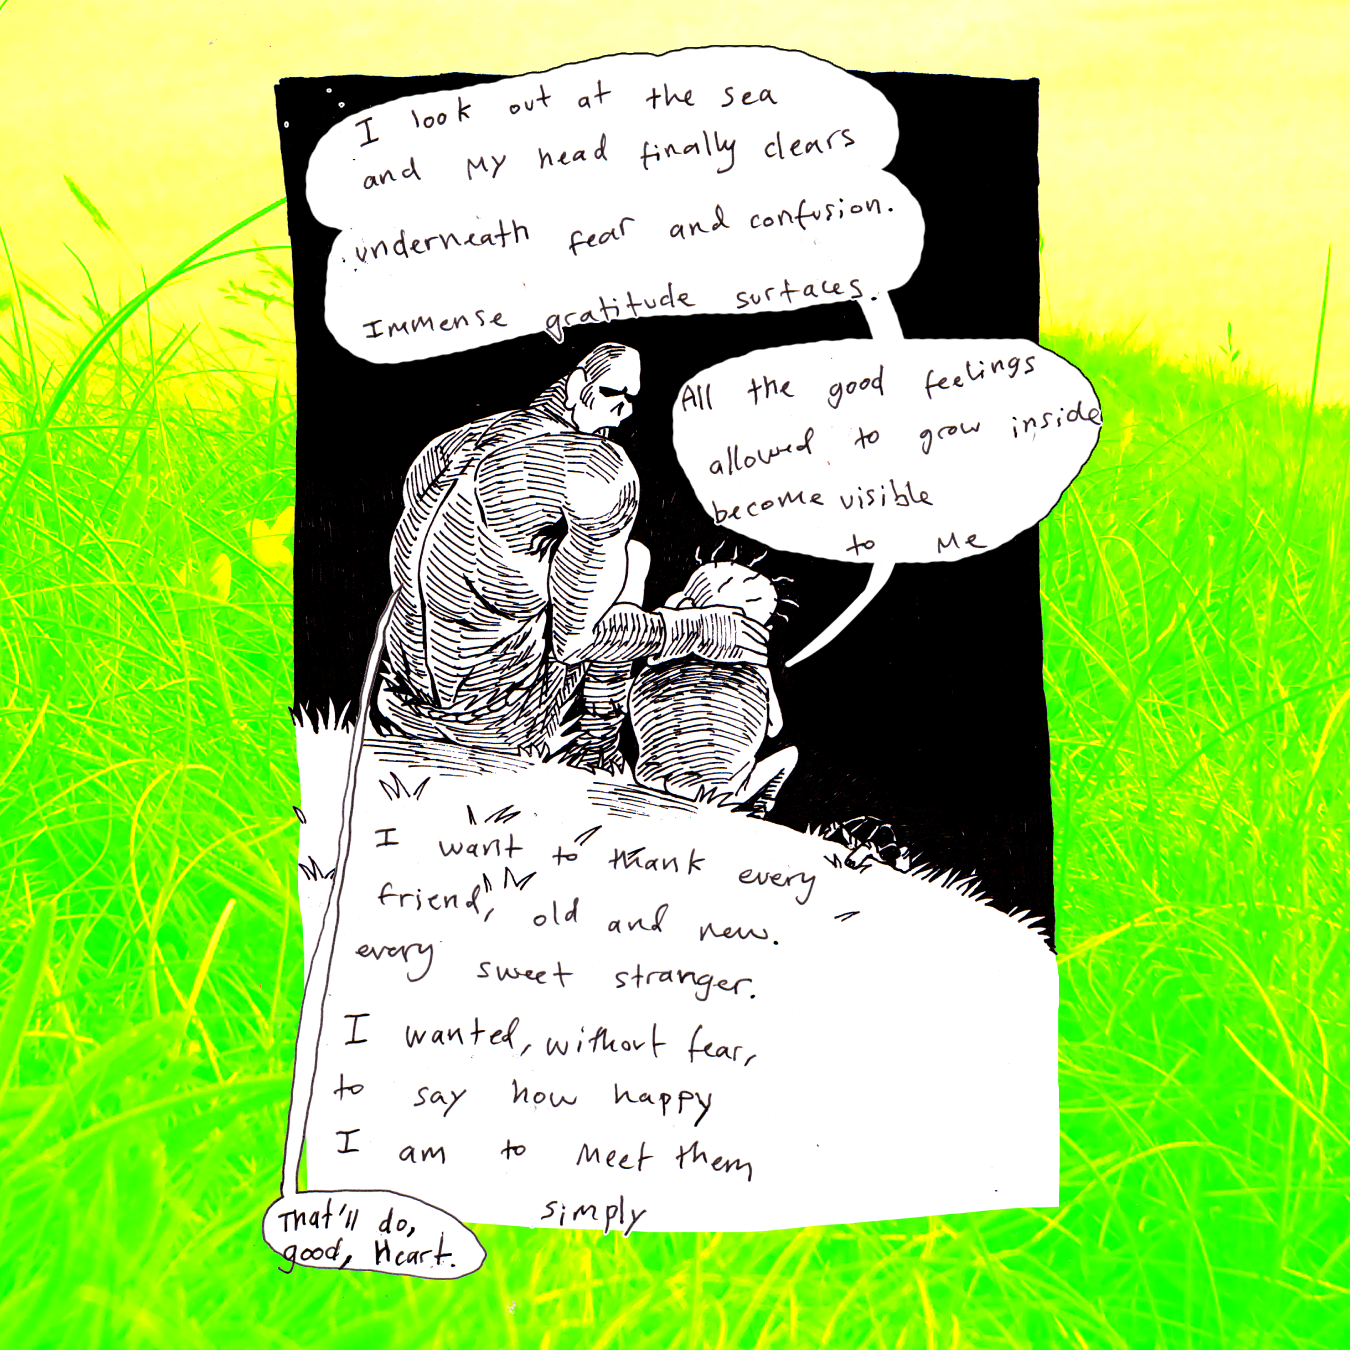 I look out at the sea
and my head finally clears
underneath fear and confusion.
Immense gratitude surfaces.
All the good feelings
allowed to grow inside
become visible
to me
I want to thank every
friend, old and new.
every sweet stranger.
I wanted, without fear,
to say how happy
I am to meet them
simply
That'll do,
good, Heart.